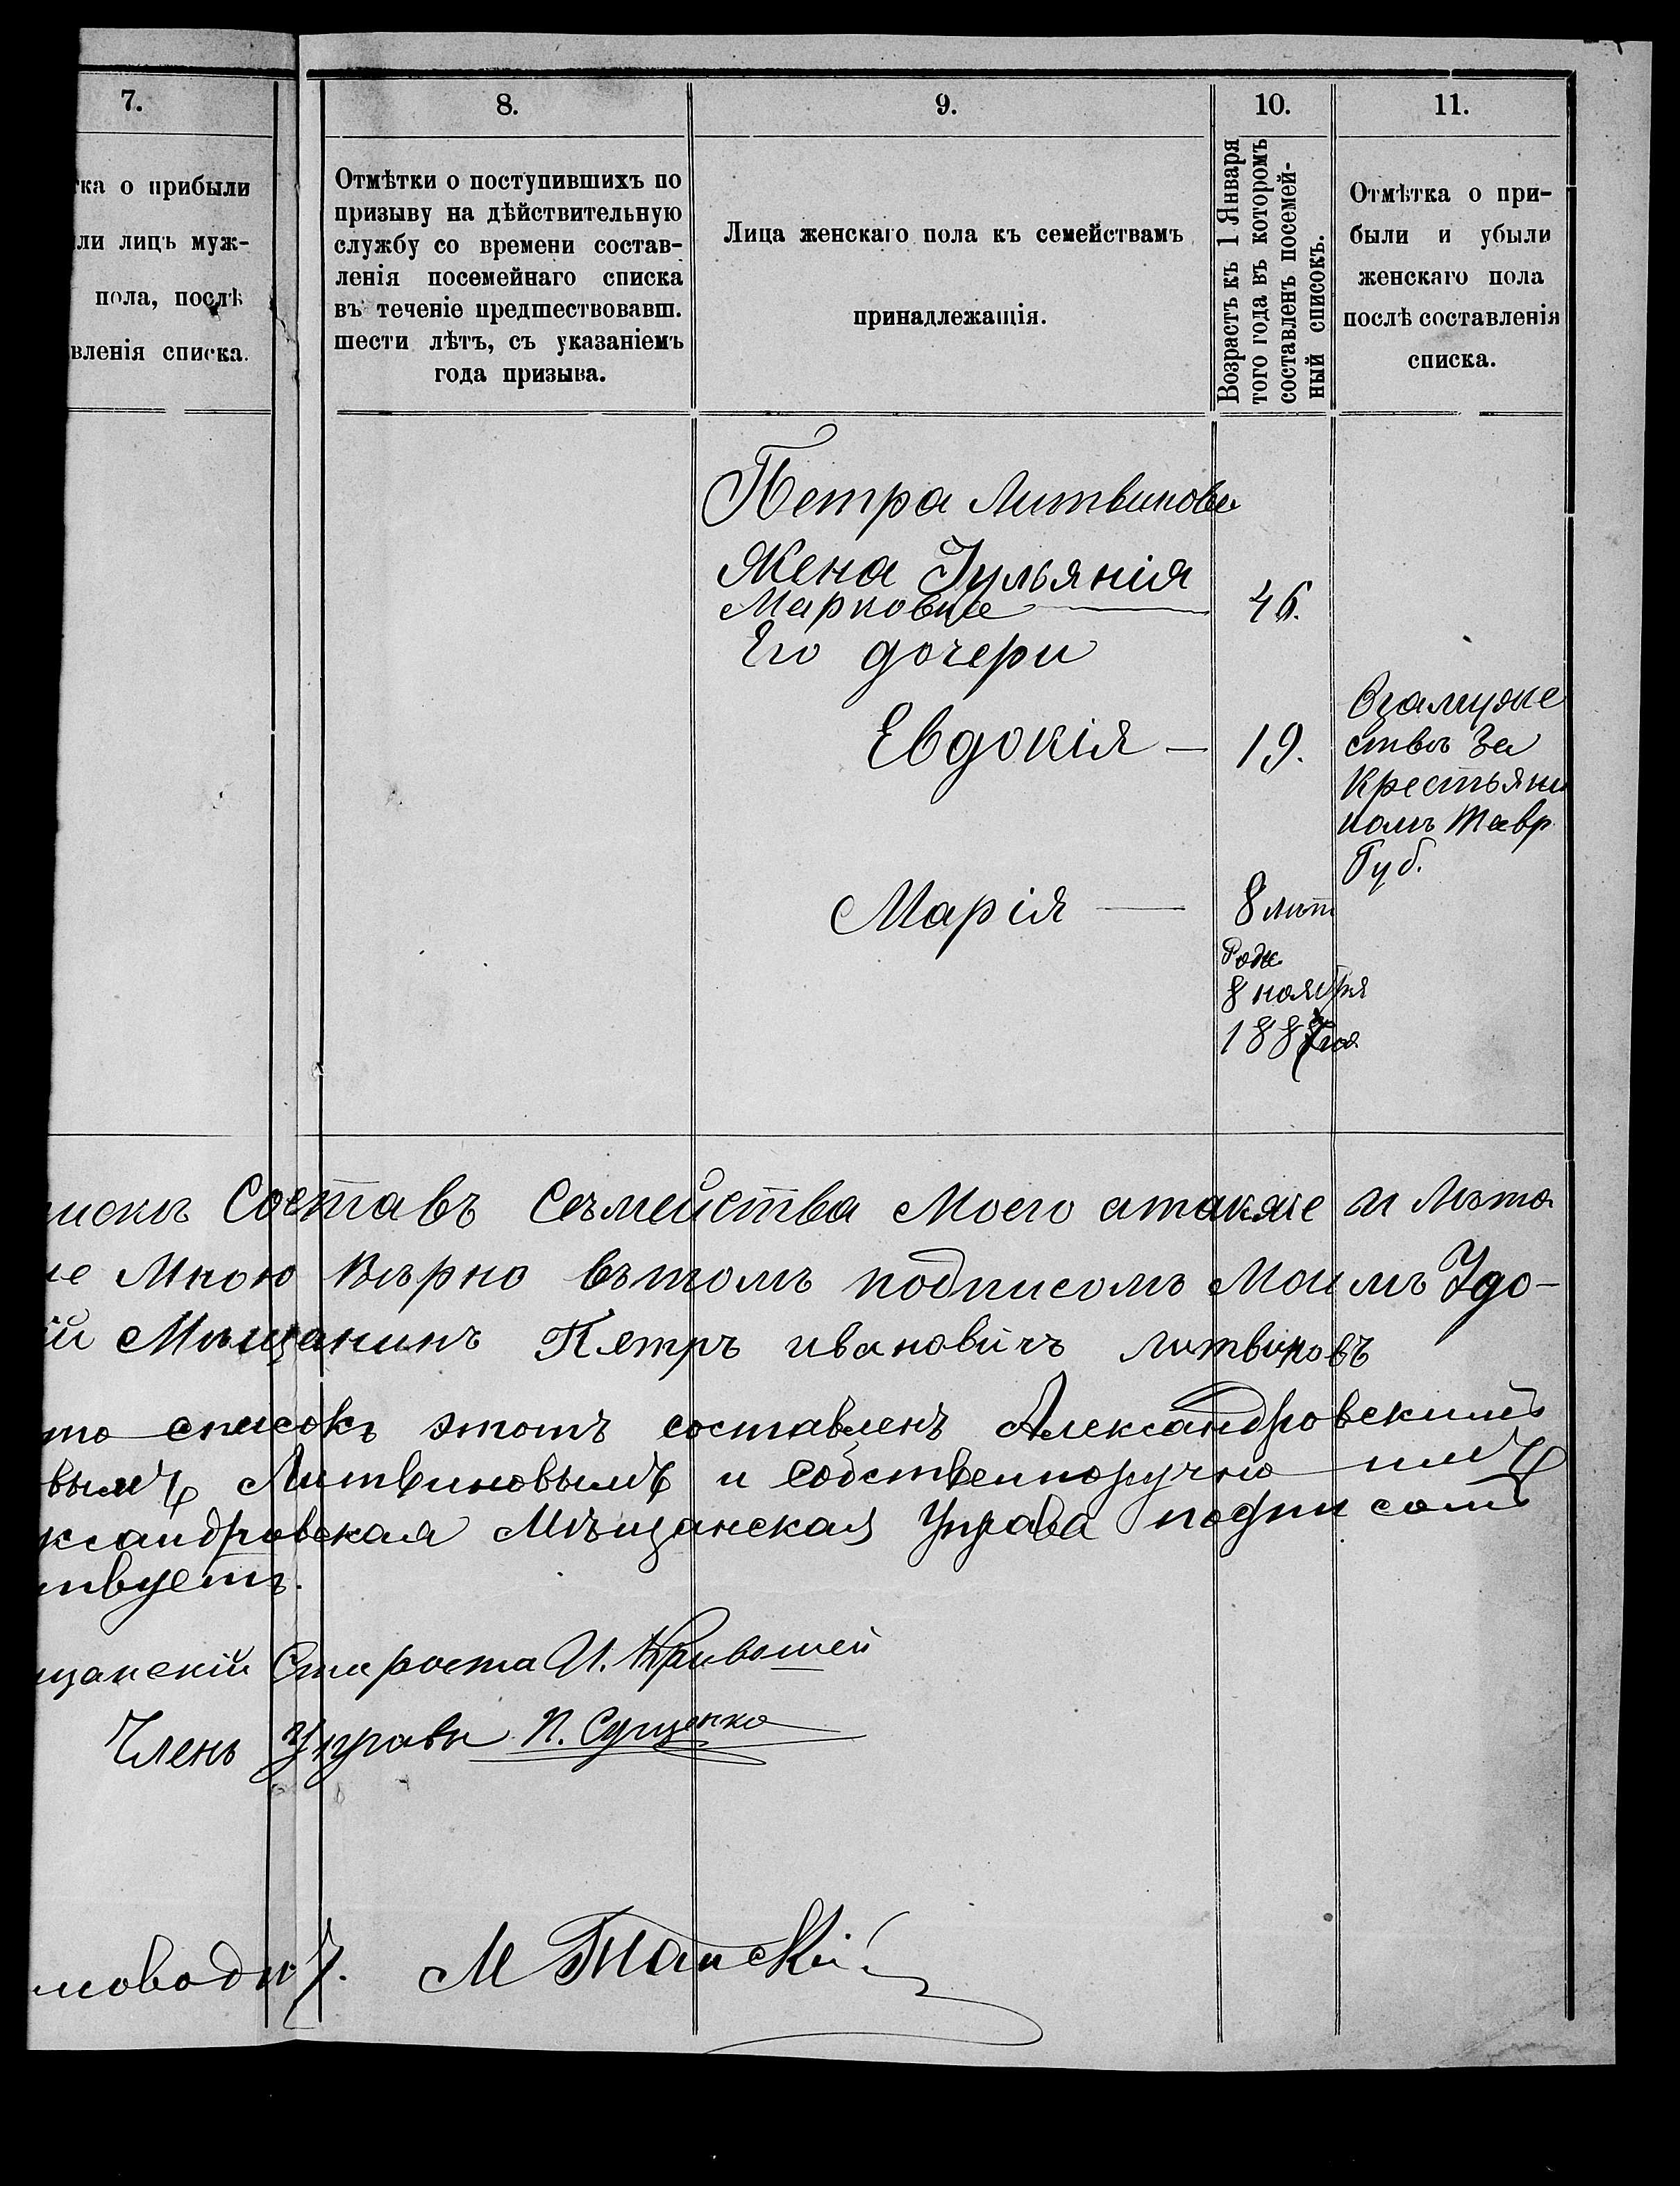 7.
тка о прибыли
ли лицъ муж-
пола, послѣ
вленія списка.
8.
Отмѣтки о поступившихъ по
призыву на дѣйствительную
службу со времени состав-
ленія посемейнаго списка
въ теченіе предшествовавш.
шести лѣтъ, съ указаніемъ
года призыва.
9.
Лица женскаго пола къ семействамъ
принадлежащія.
10.
Возрастъ къ 1 Января
того года въ которомъ
составленъ посемей-
ный списокъ.
11.
Отмѣтка о при-
были и убыли
женскаго пола
послѣ составленія
списка.
Петра Литвинова
Жена Іульянія
Марковна 46.
Его дочери
Евдокія — 19.
Взамуже
ствѣ За
Крестьяни
номъ Тавр
Губ.
Марія — 8 лѣт
Родж.
8 ноября
188
писки Составъ Съмейства Моего атакже и Лѣта
ие Мною Вѣрно вътомъ подписомъ Моимъ Удо-
ій Мѣщанинъ Петръ ивановичъ литвиновъ
то списокъ этотъ составленъ Александровскимъ
вымъ Литвиновымъ и собственноручно имъ
ксандровская Мѣщанская Управа подписомъ
твуетъ.
щанскій Староста И. Кривошей
Членъ Управы П. Сущенко
моводи М